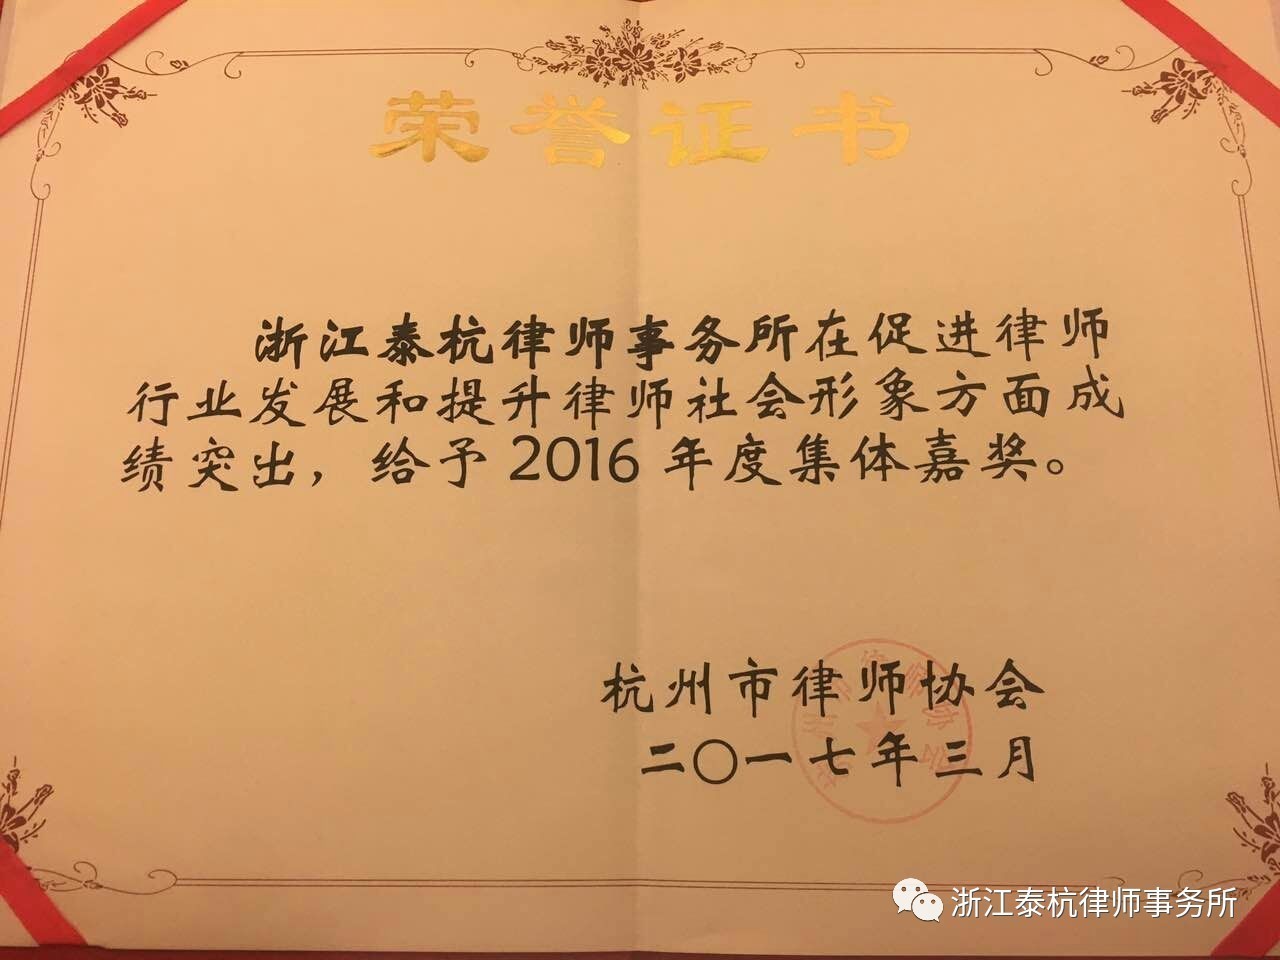 荣誉证书
浙江泰杭律师事务所在促进律师
行业发展和提升律师社会形象方面成
绩突出，给予 2016 年度集体嘉奖。
杭州市律师协会
二〇一七年三月
浙江泰杭律师事务所